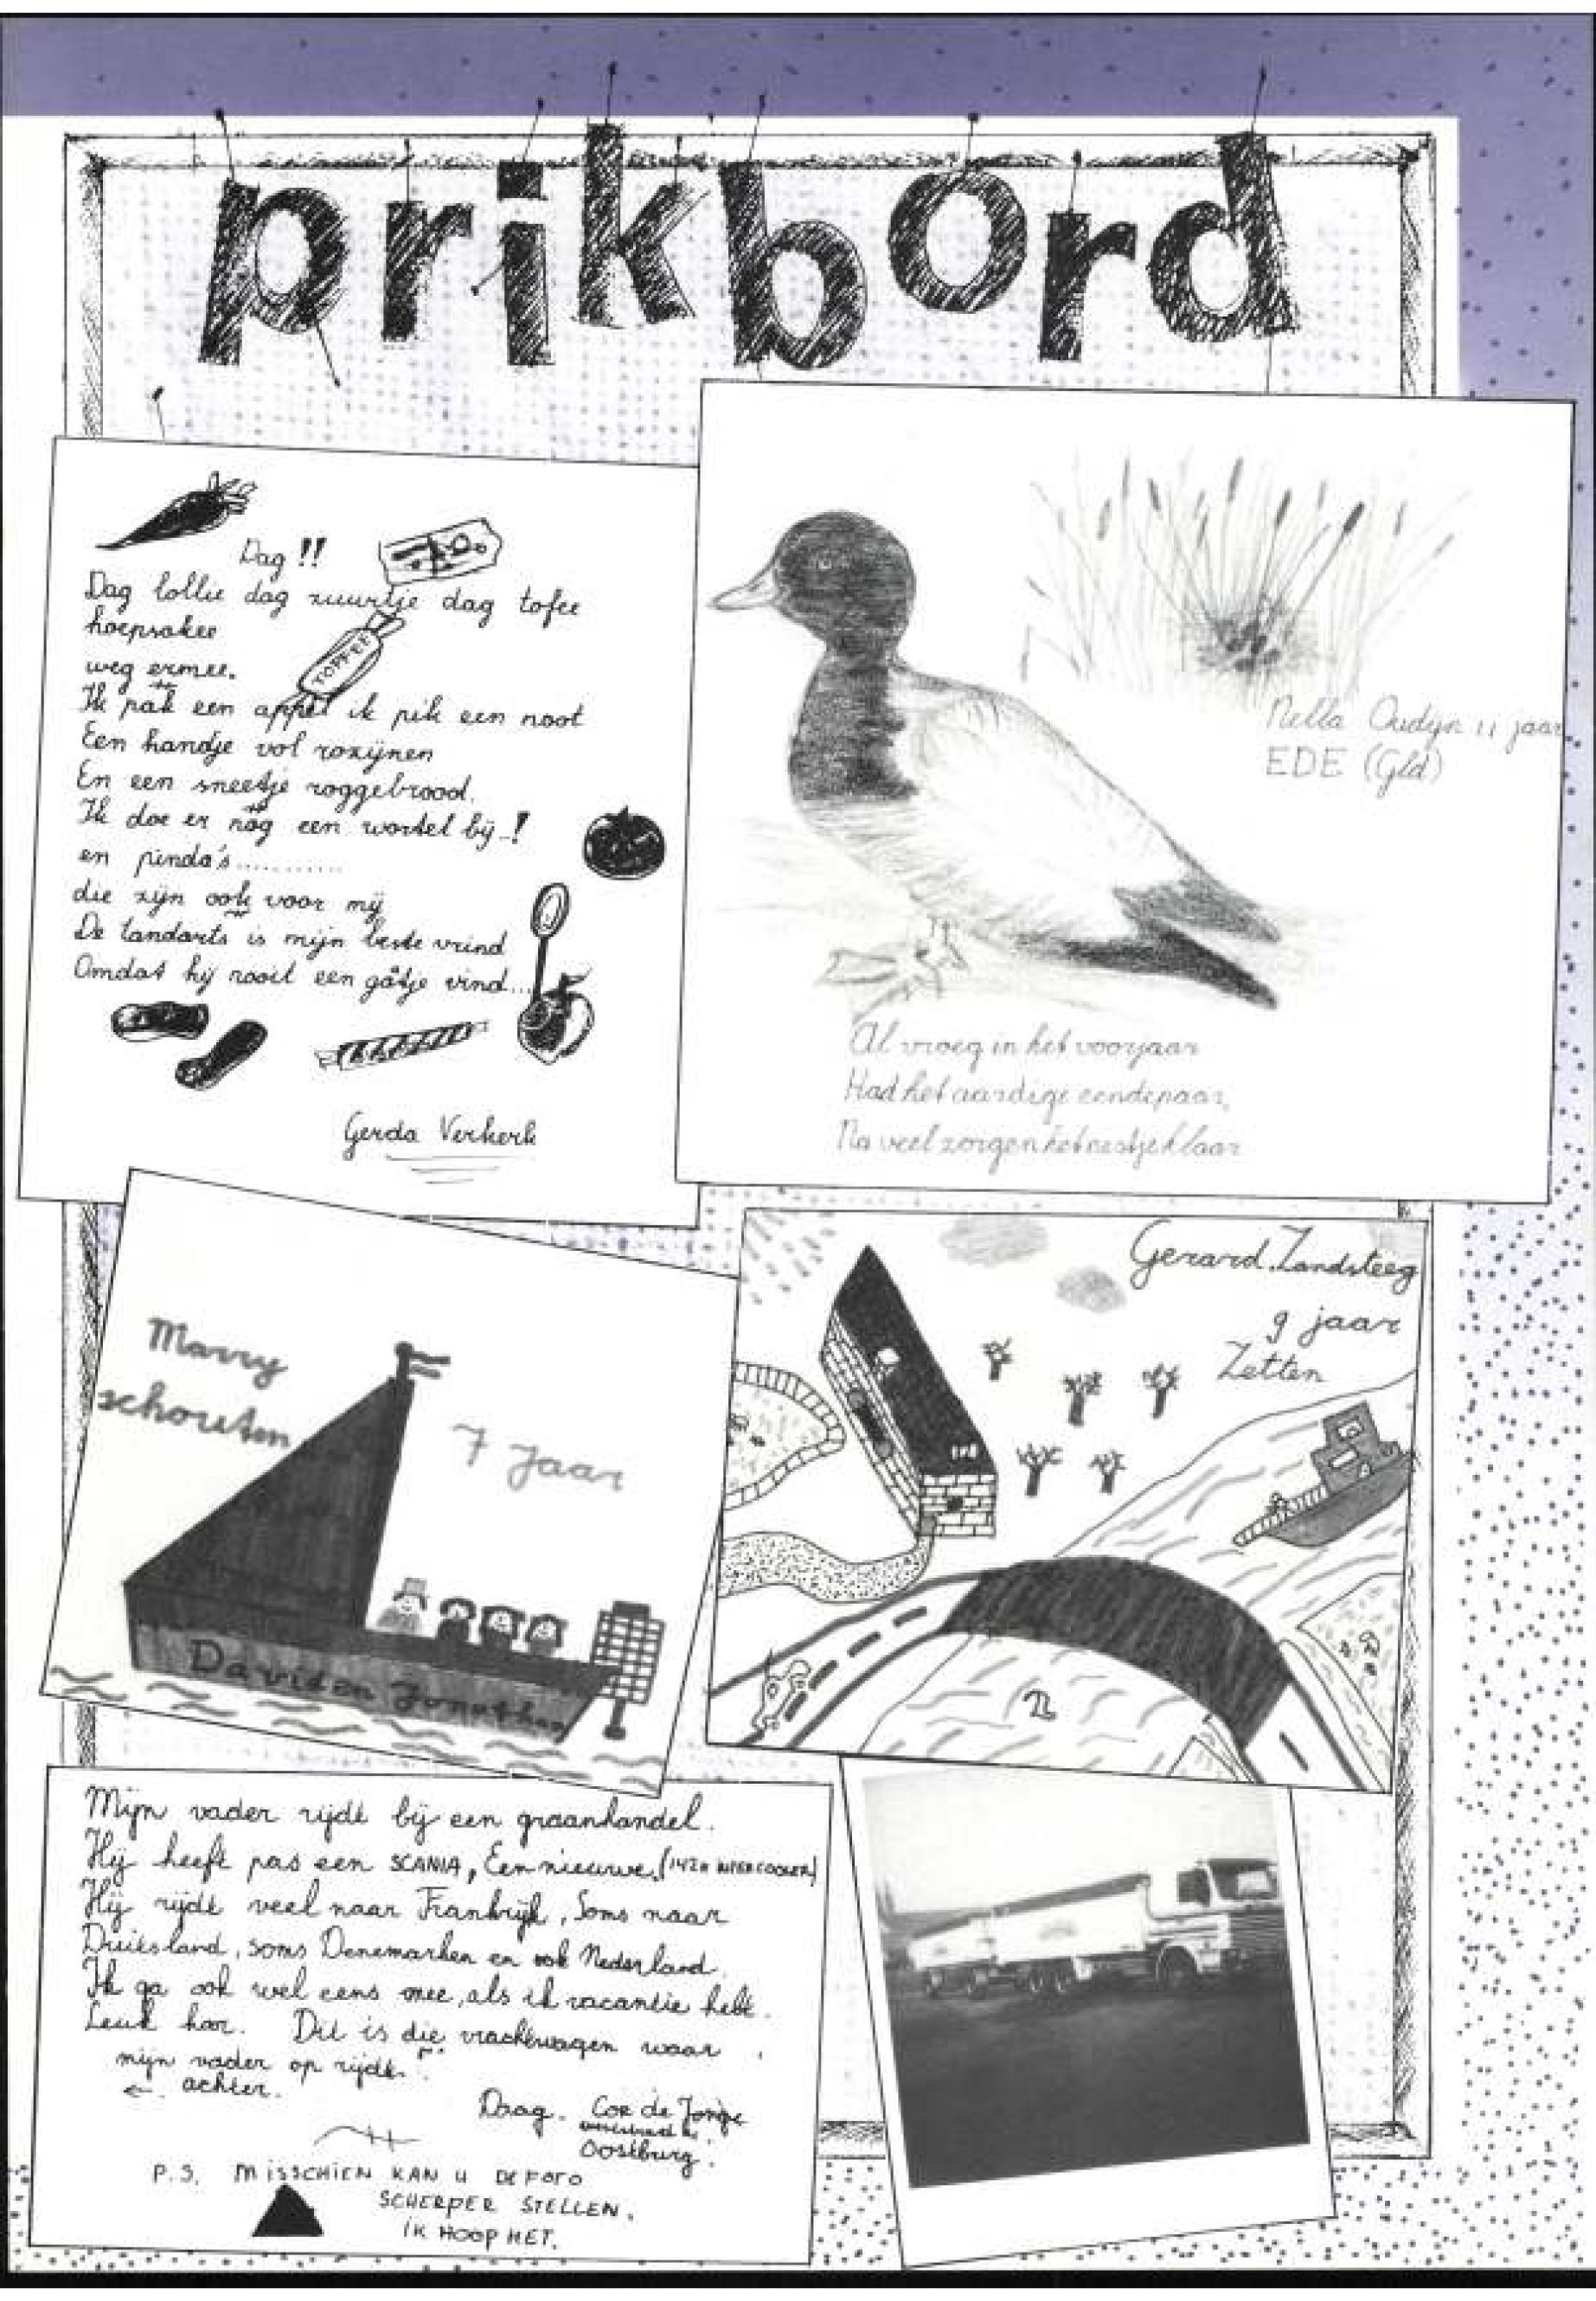 prikbord
Dag !!
Dag lollie dag zuurtje dag tofee
hoepsakee
weg ermee.
TOFFEE
Ik pak een appel ik pik een noot
Een handje vol rozijnen
En een sneetje roggebrood.
Ik doe er nòg een wortel bij..!
en pinda's............
die zijn ook voor mij
De tandarts is mijn beste vrind
Omdat hij nooit een gaatje vind...
Gerda Verkerk
Nella Oudijn 11 jaar
EDE (Gld)
Al vroeg in het voorjaar
Had het aardige eendepaar,
Na veel zorgen het nestje klaar
Marry
schouten
7 Jaar
David en Jonathan
Gerard Zandsteeg
9 jaar
Zetten
Mijn vader rijdt bij een graanhandel.
Hij heeft pas een SCANIA, Een nieuwe. (142H INTERCOOLER)
Hij rijdt veel naar Frankrijk, Soms naar
Duitsland, soms Denemarken en ook Nederland.
Ik ga ook wel eens mee, als ik vacantie hebt.
Leuk hor. Dit is die vrachtwagen waar
mijn vader op rijdt.
← achter.
Daag. Cor de Jonge
Oostburg.
P.S. MISSCHIEN KAN U DE FOTO
SCHERPER STELLEN.
IK HOOP HET.